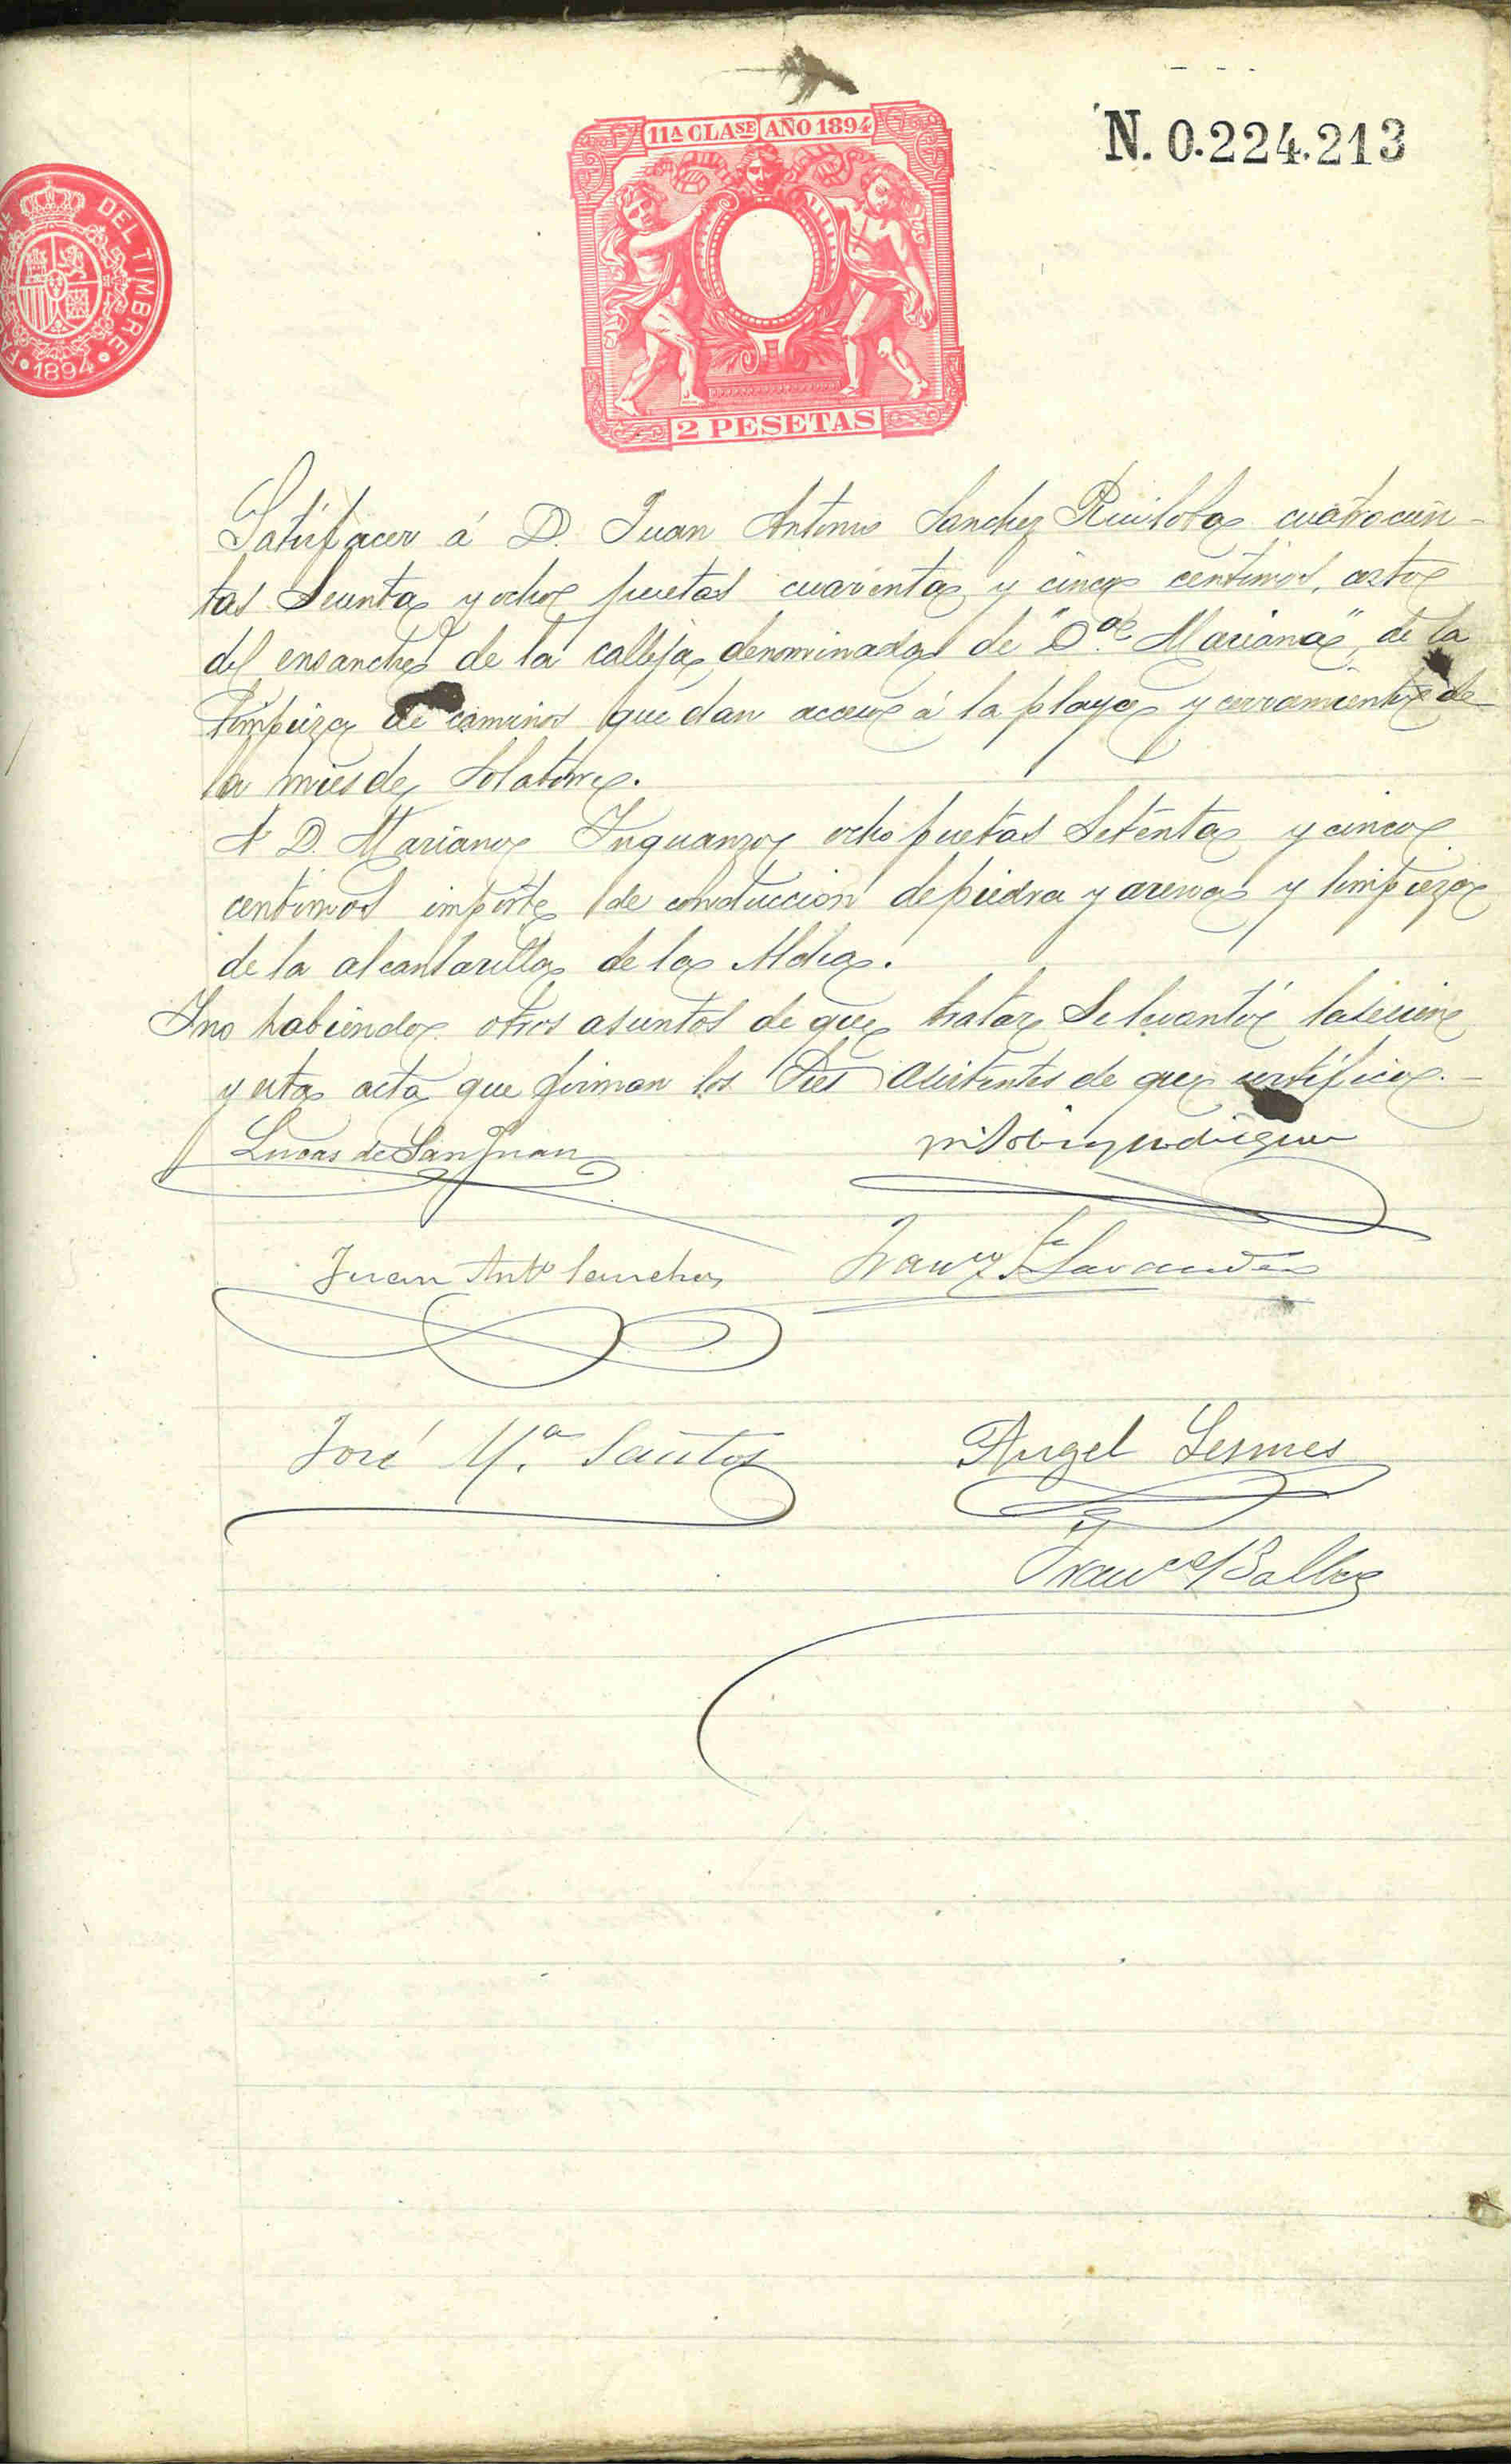 N. 0.224.213
11ª CLASE AÑO 1894
DEL TIMBRE
1894
2 PESETAS
Satisfacer á D. Juan Antonio Sanchez Ruiloba cuatrocien-
tas sesenta y ocho pesetas cuarenta y cinco centimos, costo
del ensanche de la calleja denominada de "Dª Mariana", de la
limpieza de caminos que dan acceso á la playa y cerramiento de
la mies de Solatorre.
A D. Mariano Inguanzo ocho pesetas setenta y cinco
centimos importe de conduccion de piedra y arena y limpieza
de la alcantarilla de la
Y no habiendo otros asuntos de que tratar se levantó la sesion
y esta acta que firman los Sres asistentes de que certifico.-
Lucas de San Juan
Juan Antº Sanchez
Francº
José Mª Santos
Angel Lesmes
Francº Balbas